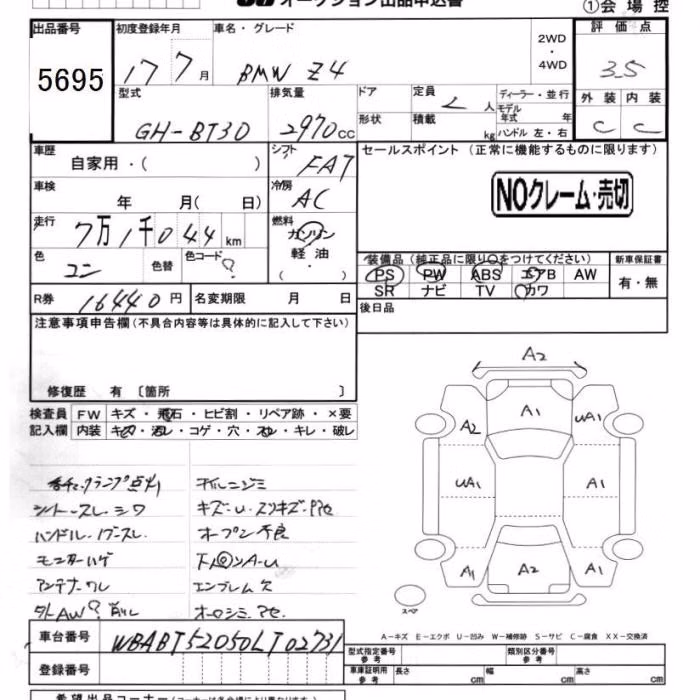 オークション出品申込書
①会場控
出品番号 初度登録年月 車名・グレード 2WD・4WD 評価点
5695 17 7月 BMW Z4 3.5
型式 排気量 ドア 定員 2人 ディーラー・並行 外装 内装
GH-BT30 2970cc 形状 積載 kg モデル年式 年 C C
ハンドル 左・右
車歴 自家用・( ) シフト FAT セールスポイント (正常に機能するものに限ります)
車検 年 月( 日) 冷房 AC NOクレーム・売切
走行 7万1千044km 燃料 ガソリン
軽油
( ・ )
色 コン 色替 色コード ? 装備品 (純正品に限り○をつけてください) 新車保証書
PS PW ABS エアB AW 有・無
SR ナビ TV カワ
R券 16440円 名変期限 月 日 後日品
注意事項申告欄(不具合内容等は具体的に記入して下さい)
修復歴 有 〔箇所 〕
検査員 FW キズ・飛石・ヒビ割・リペア跡・×要
記入欄 内装 キズ・汚レ・コゲ・穴・スレ・キレ・破レ
A2
A1
A2
UA1
UA1
A1
A1
A2
A1
スペア
シートスレ・シワ
ハンドル・ノブスレ
オープン不良
モニターハゲ
アンテナワレ エンブレム欠
外AW?
A-キズ E-エクボ U-凹み W-補修跡 S-サビ C-腐食 XX-交換済
車台番号 WBABT52050LT02731
登録番号
型式指定番号 参考 類別区分番号 参考
車庫証明用 参考 長さ cm 幅 cm 高さ cm
希望出品コーナー